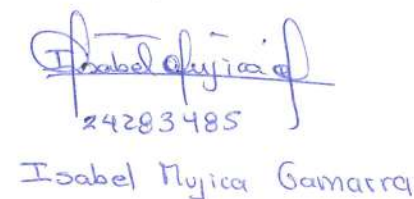 Isabel Mujica G
24283485
Isabel Mujica Gamarra